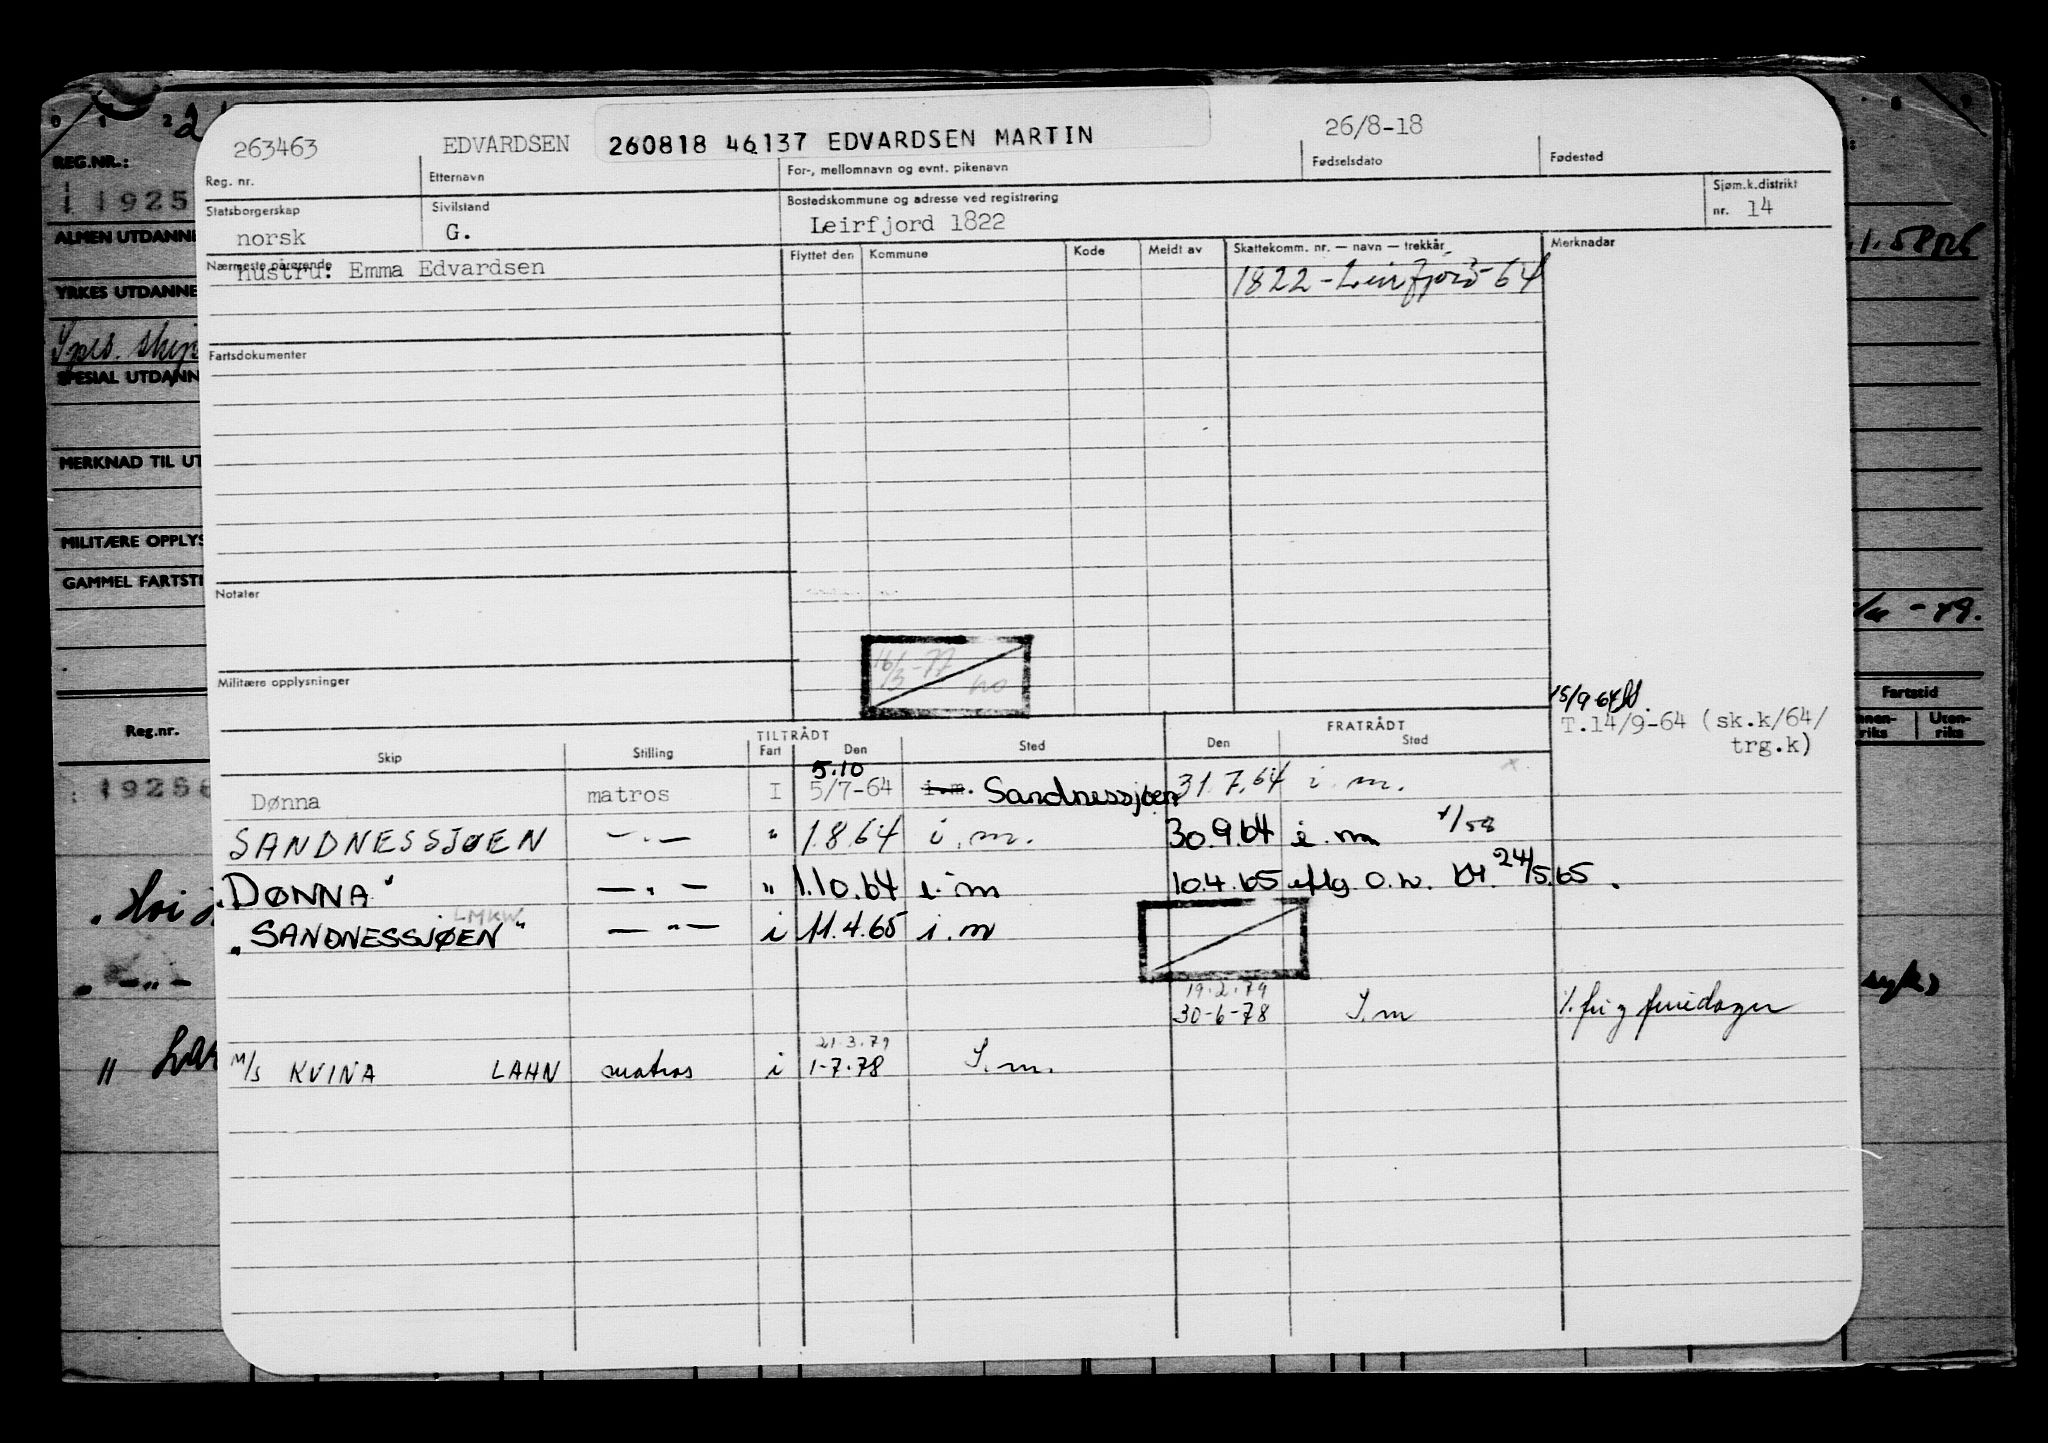 263463 EDVARDSEN 260818 46137 EDVARDSEN MARTIN 26/8-18
Reg. nr. Etternavn For-, mellomnavn og evnt. pikenavn Fødselsdato Fødested
Statsborgerskap Sivilstand Bostedskommune og adresse ved registrering Sjøm.k.distrikt
norsk G. Leirfjord 1822 nr. 14
Nærmeste pårørende Flyttet den Kommune Kode Meldt av Skattekomm. nr. — navn — trekkår Merknadar
hustru: Emma Edvardsen 1822 - Leirfjord - 64
Fartsdokumenter
Notater
16/3-77
Militære opplysninger
15/9-64
T.14/9-64 (sk.k/64/
trg.k)
TILTRÅDT FRATRÅDT
Skip Stilling Fart Den Sted Den Sted
5.10
Dønna matros I 5/7-64 i.m. Sandnessjøen 31.7.64 i.m.
SANDNESSJØEN —.— " 1.8.64 i.m. 30.9.64 i.m /58
"DØNNA" —.— " 1.10.64 i.m 10.4.65 iflg. O.w. 24/5.65.
LMKW
"SANDNESSJØEN" —"— i 11.4.65 i.m
19.2.79
30-6-78 I.m
21.3.79
M/S KVINA LAHN matros i 1-7-78 I.m.
REG.NR.:
1925
ALMEN UTDANN
YRKES UTDANNE
Spes. skip
SPESIAL UTDANN
MERKNAD TIL UT
MILITÆRE OPPLYS
GAMMEL FARTSTI
Reg.nr.
1925
Fartstid
riks Uten-
riks